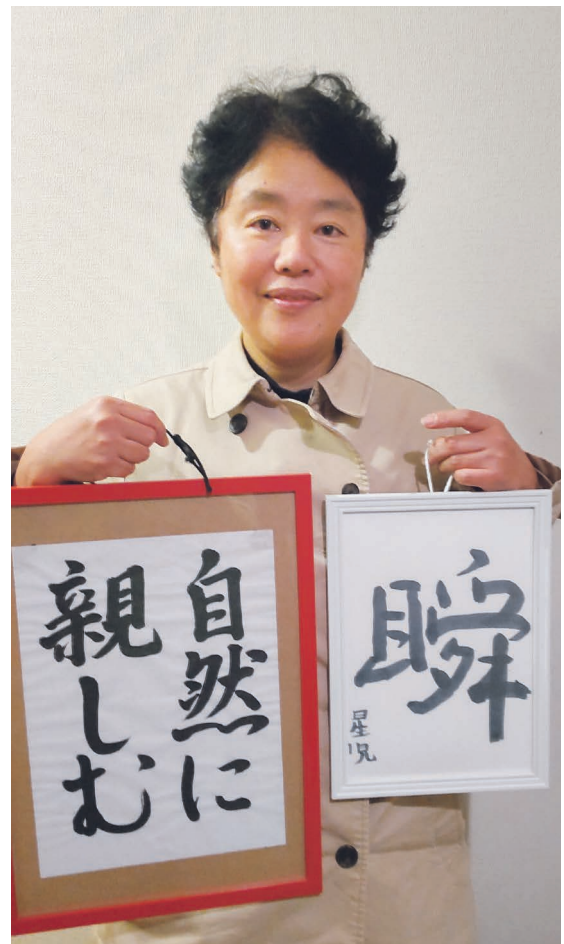 自然に
親しむ
瞬
星児